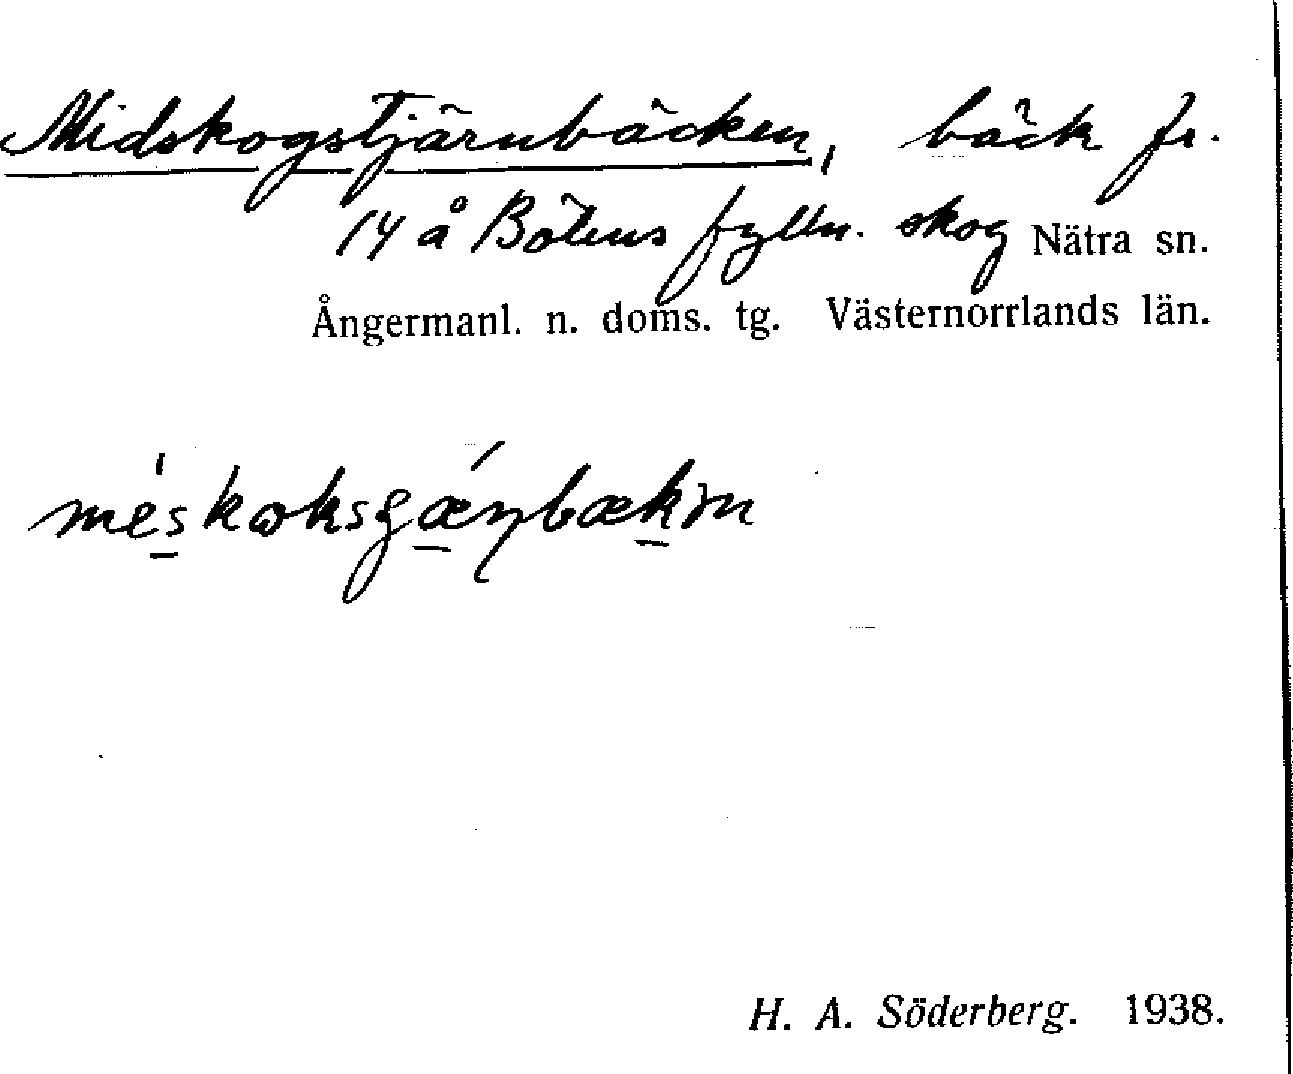 Midskogstjärnbäcken, bäck fr.
14 å Bölens fylln. skog Nätra sn.
Ångermanl. n. doms. tg. Västernorrlands län.
H. A. Söderberg. 1938.